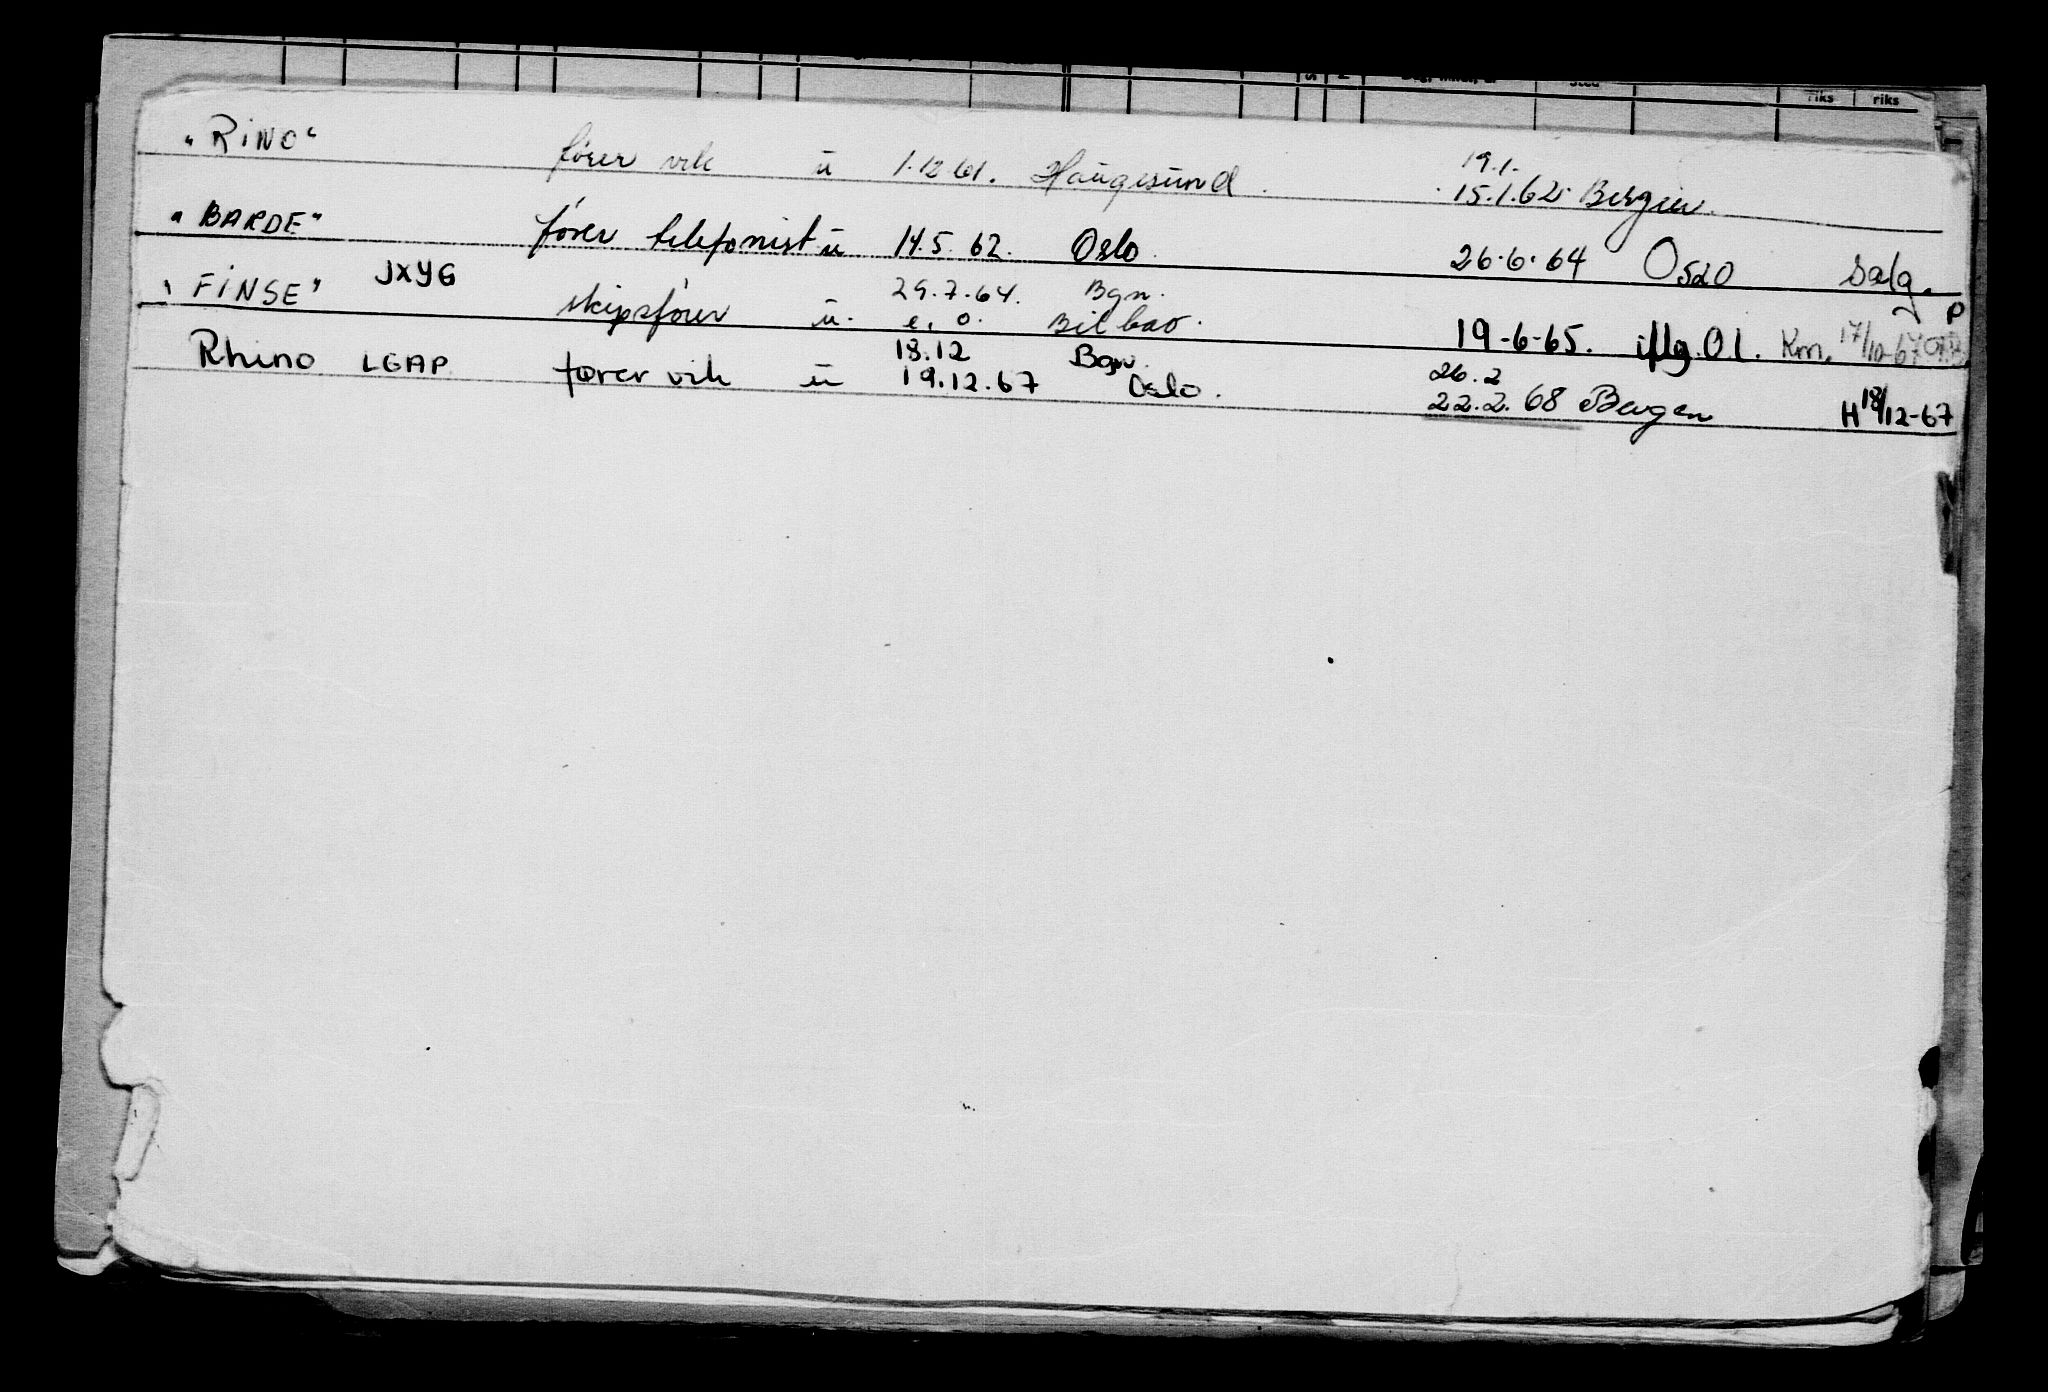 riks riks
"RINO" fører vik u 1.12.61. Haugesund. 19.1.
15.1.62 Bergen.
"BARDE" fører telefonist u 14.5.62. Oslo. 26.6.64 Oslo salg.
"FINSE" JXYG skipsfører u. 29.7.64. Bgn.
e.o. Bilbao. 19-6-65. iflg. Ol. Km. 17/10-67 P
Rhino LGAP fører vik u 18.12 Bgn. 26.2
19.12.67 Oslo. 22.2.68 Bergen H 18/12-67